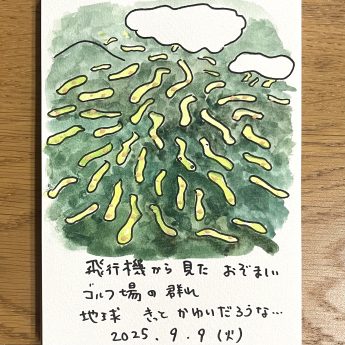 飛行機から見た おぞましい
ゴルフ場の群れ
地球 きっと かゆいだろうな…
2025. 9. 9 (火)